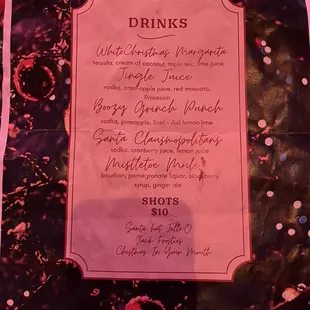 DRINKS
White Christmas Margarita
tequila, cream of coconut, triple sec, lime juice
Jingle Juice
vodka, cran-apple juice, red moscato,
Prosecco
Boozy Grinch Punch
vodka, pineapple, Kool-Aid lemon lime
Santa Clausmopolitans
vodka, cranberry juice, lemon juice
Mistletoe Mule
bourbon, pomegranate liquor, blackberry
syrup, ginger ale
SHOTS
$10
Santa hat Jello O
Jack Frosties
Christmas In Your Mouth